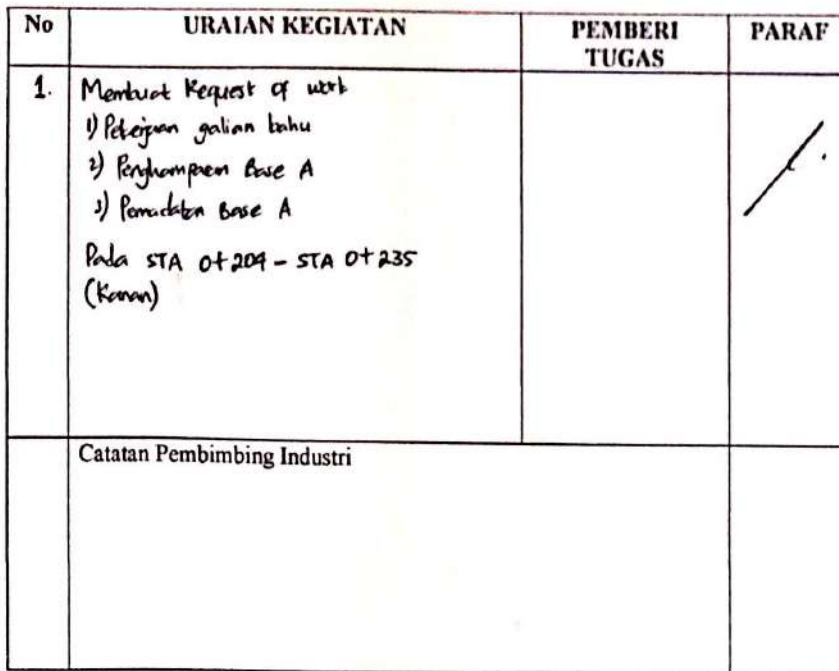 No URAIAN KEGIATAN PEMBERI TUGAS PARAF
1. Membuat Request of work
1) Pekerjaan galian bahu
2) Penghamparan Base A
3) Pemadatan Base A
Pada STA 0+204 - STA 0+235
(Kanan)
Catatan Pembimbing Industri